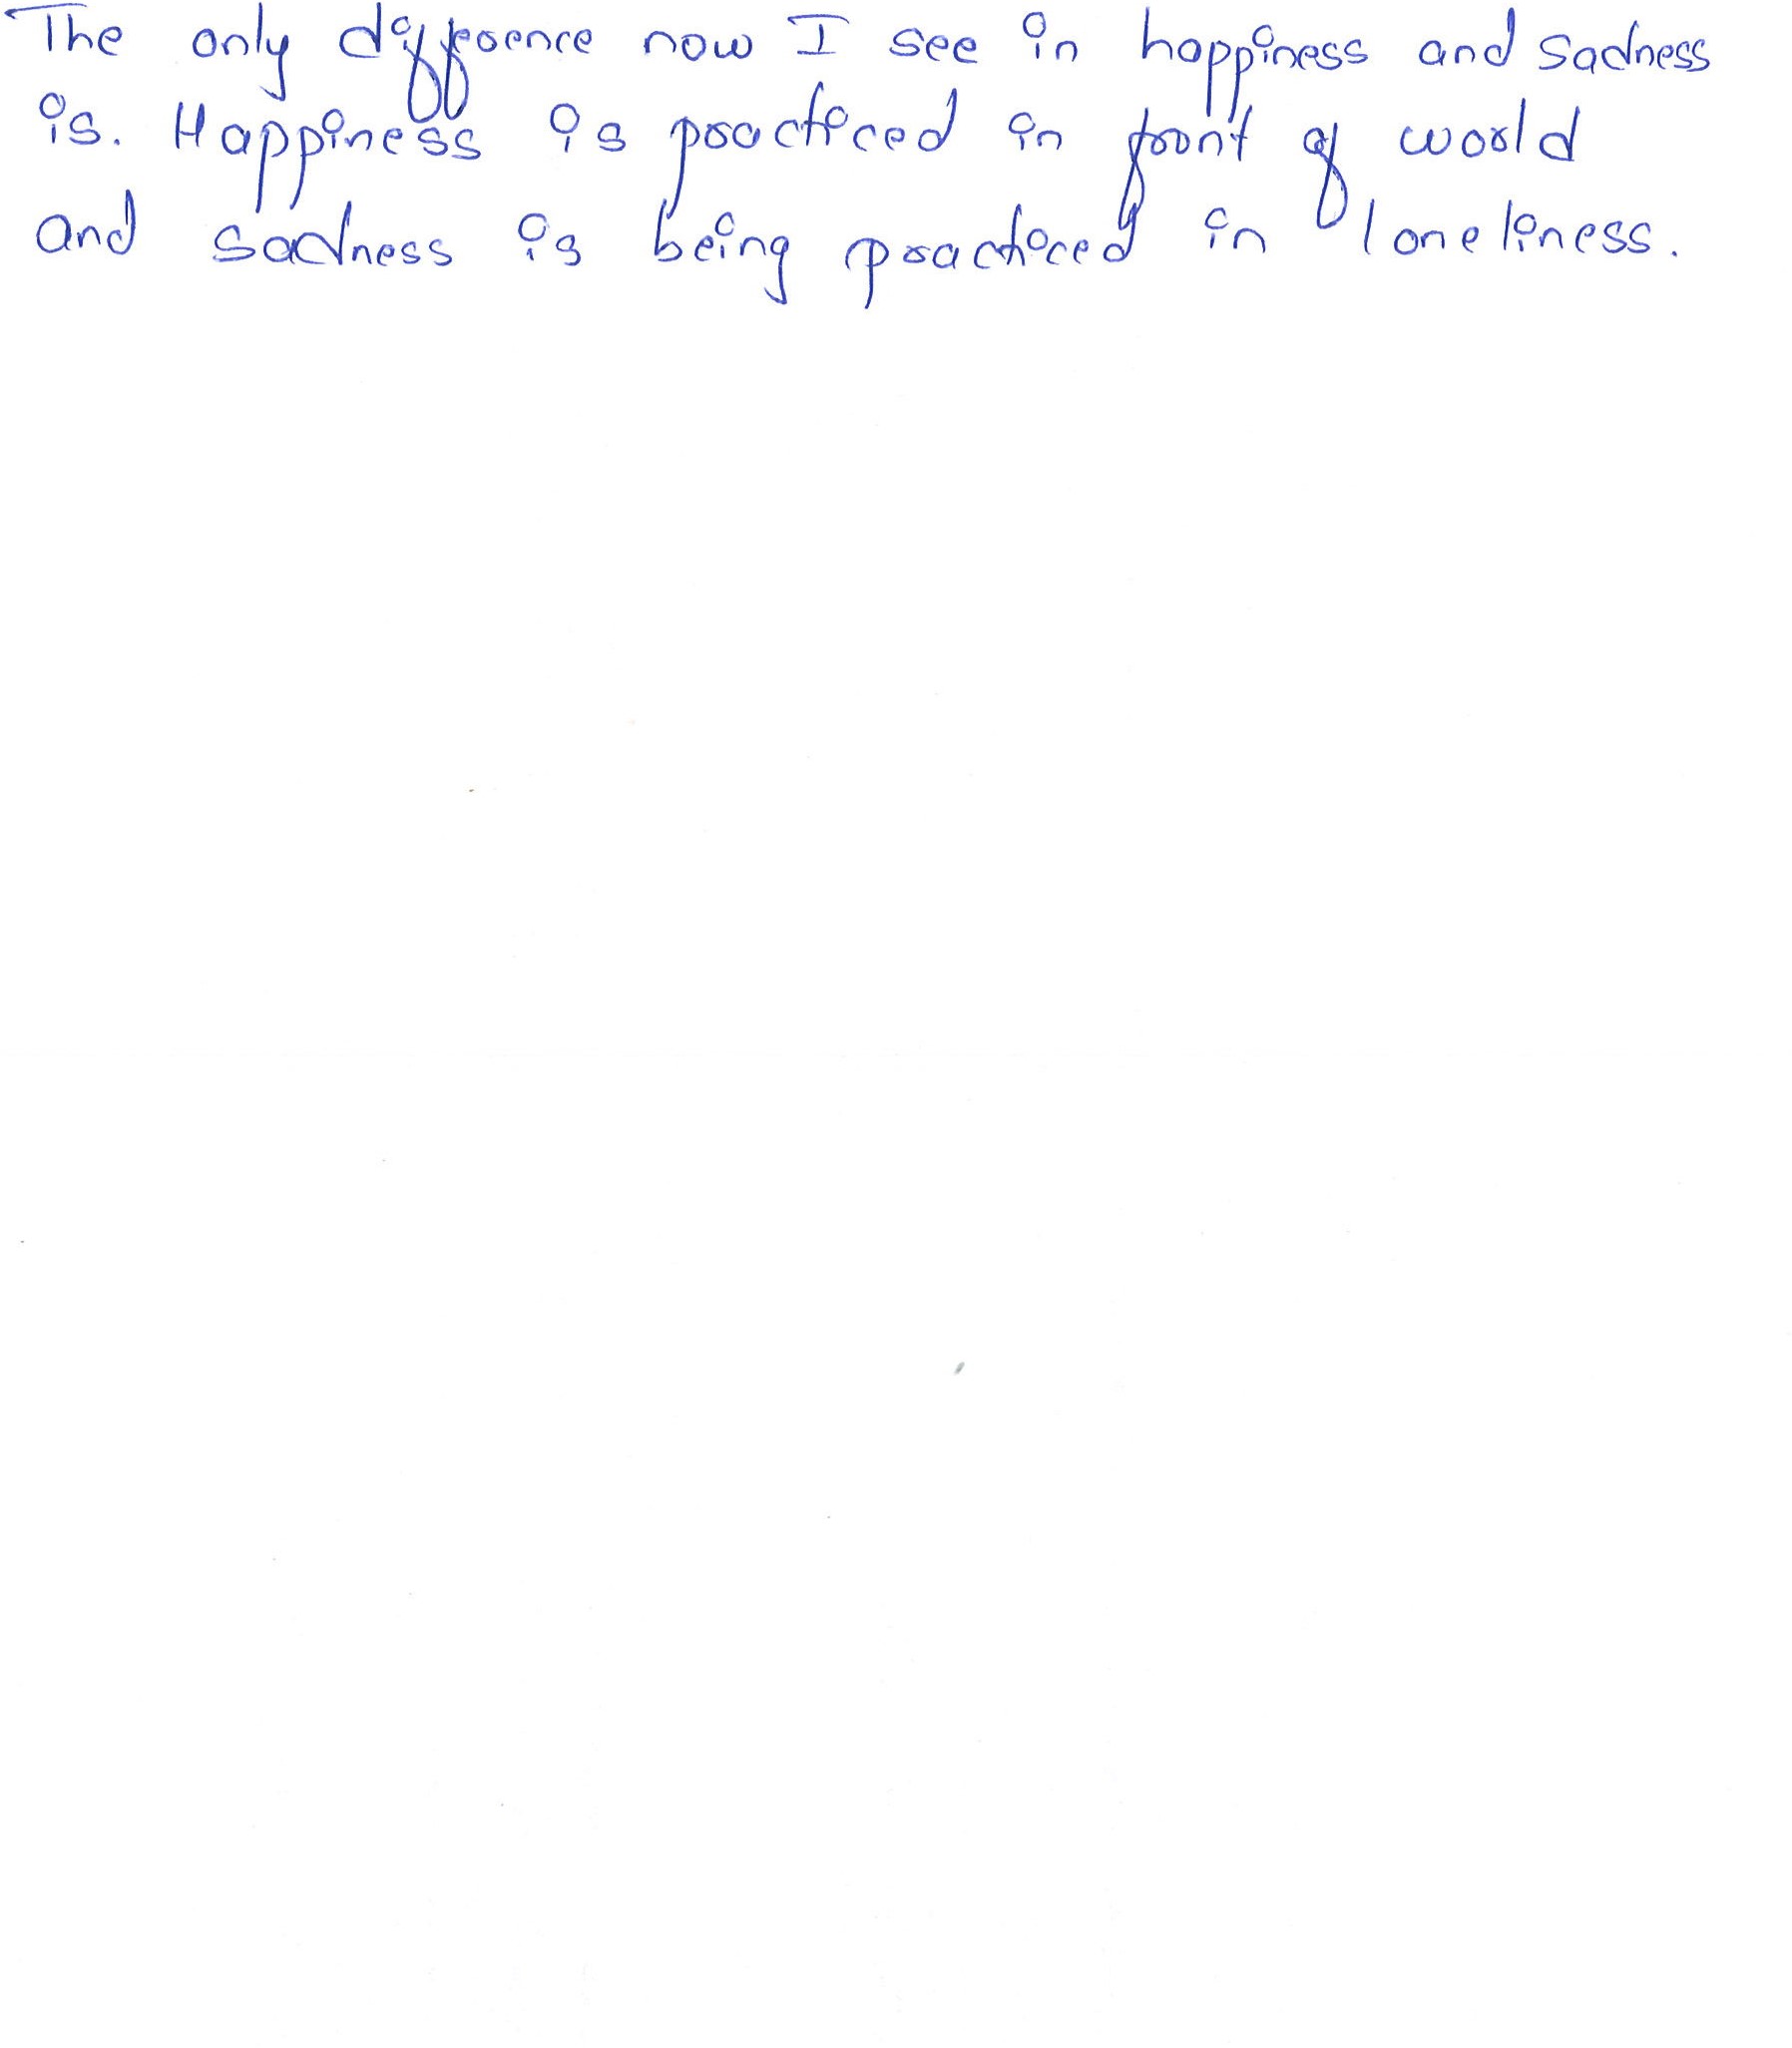 The only diffrence now I see in happiness and sadness
is. Happiness is practiced in front of world
and sadness is being practiced in loneliness.